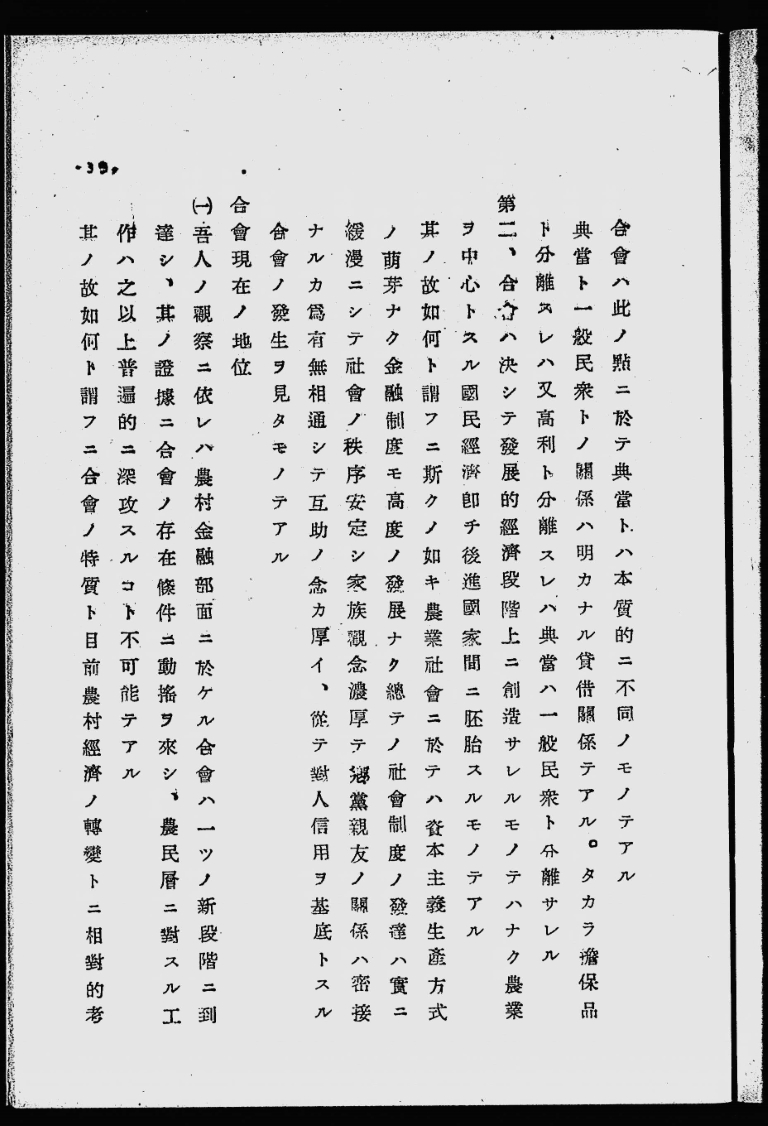 合會ハ此ノ點ニ於テ典當トハ本質的ニ不同ノモノテアル
典當ト一般民衆トノ關係ハ明カナル貸借關係テアル。タカラ擔保品
ト分離スレハ又高利ト分離スレハ典當ハ一般民衆ト分離サレル
第二、合會ハ決シテ發展的經濟段階上ニ創造サレルモノテハナク農業
ヲ中心トスル國民經濟卽チ後進國家間ニ胚胎スルモノテアル
其ノ故如何ト謂フニ斯クノ如キ農業社會ニ於テハ資本主義生產方式
ノ萌芽ナク金融制度モ高度ノ發展ナク總テノ社會制度ノ發達ハ實ニ
緩漫ニシテ社會ノ秩序安定シ家族觀念濃厚テ鄕黨親友ノ關係ハ密接
ナルカ爲有無相通シテ互助ノ念カ厚イ、從テ對人信用ヲ基底トスル
合會ノ發生ヲ見タモノテアル
合會現在ノ地位
㈠吾人ノ觀察ニ依レハ農村金融部面ニ於ケル合會ハ一ツノ新段階ニ到
達シ、其ノ證據ニ合會ノ存在條件ニ動搖ヲ來シ、農民層ニ對スル工
作ハ之以上普遍的ニ深攻スルコト不可能テアル
其ノ故如何ト謂フニ合會ノ特質ト目前農村經濟ノ轉變トニ相對的考
・39・